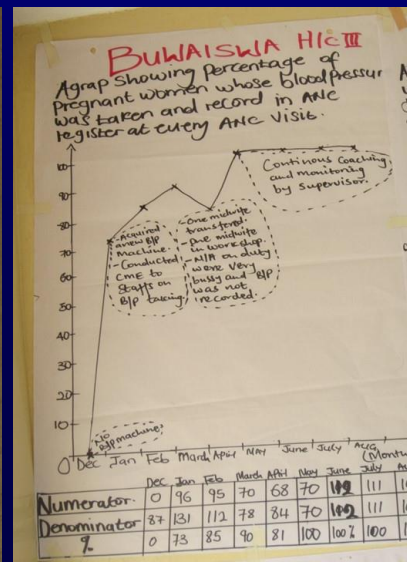 BUWAISWA H/C III
A grap showing percentage of
pregnant women whose bloodPressur
was taken and record in ANC
register at every ANC Visit.
100
90
80
70
60
50
40
30
20
10
0
Continous coaching
and monitoring
by supervisor.
-Acquired
a new B/P
Machine.
-Conducted
CME to
Staffs on
B/P taking.
-One midwife
transferred.
-One midwife
in workshop.
-N/A on duty
were very
bussy and B/P
was not
recorded.
No
B/p machine
Dec Jan Feb March April MAY June July AUG
(Month
Dec Jan Feb March April May June July
Numerator. 0 96 95 70 68 70 102 111
Denominator 87 131 112 78 84 70 102 111
% 0 73 85 90 81 100 100% 100